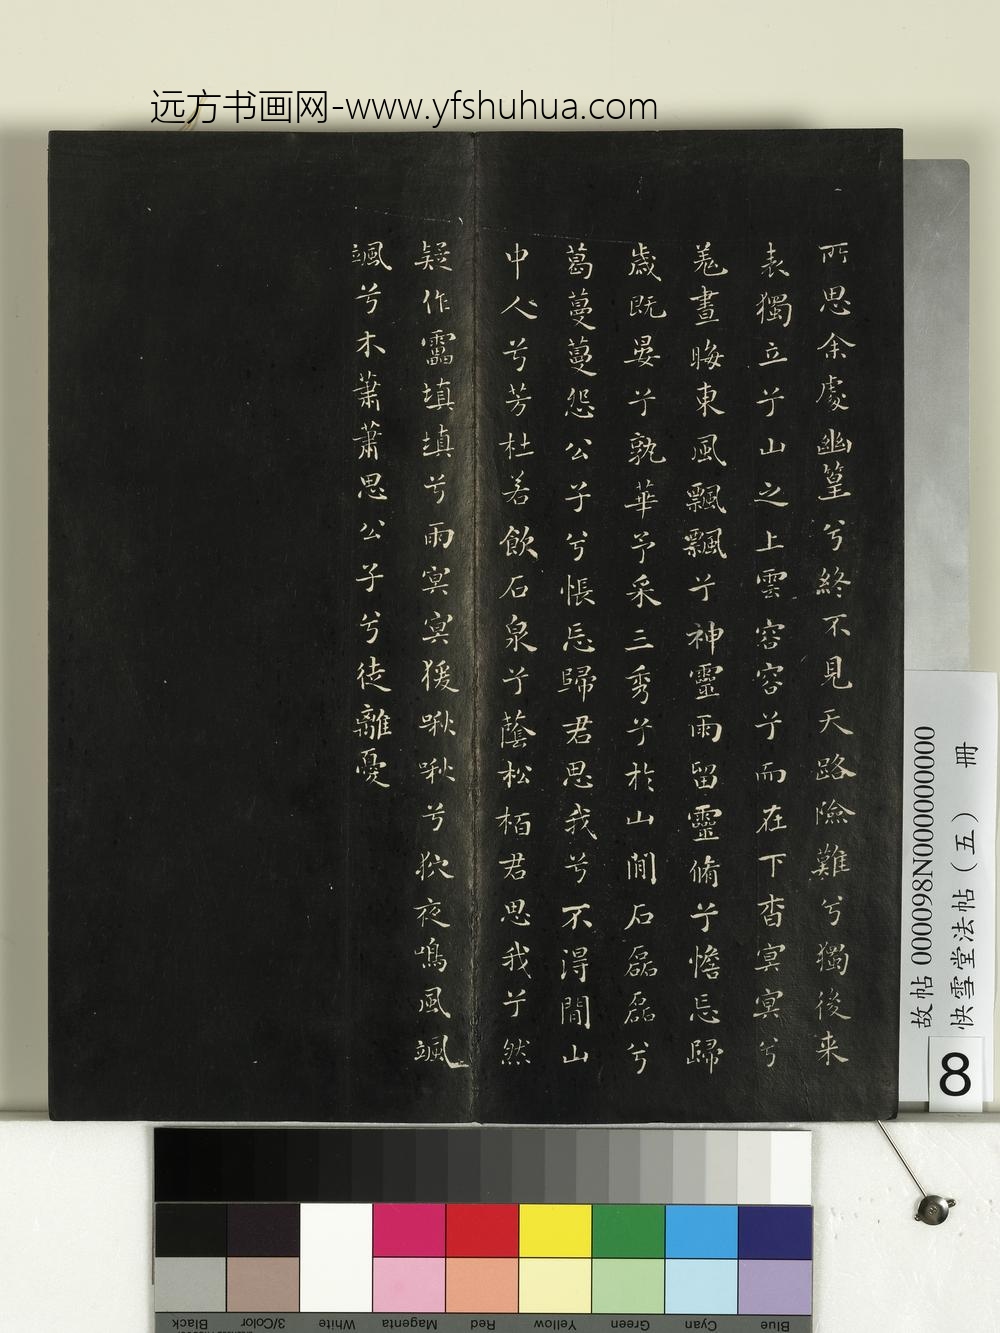 远方书画网-www.yfshuhua.com
所思余處幽篁兮終不見天路險難兮獨後来
表獨立兮山之上雲容容兮而在下杳冥冥兮
羌晝晦東風飄飄兮神靈雨留靈脩兮憺忘歸
歲既晏兮孰華予采三秀兮於山間石磊磊兮
葛蔓蔓怨公子兮悵忘歸君思我兮不淂閒山
中人兮芳杜若飲石泉兮蔭松栢君思我兮然
疑作靁填填兮雨冥冥猨啾啾兮狖夜鳴風颯
颯兮木蕭蕭思公子兮徒離憂
故帖 000098N000000000
快雪堂法帖（五） 冊
8
Black
3/Color
White
Magenta
Red
Yellow
Green
Cyan
Blue